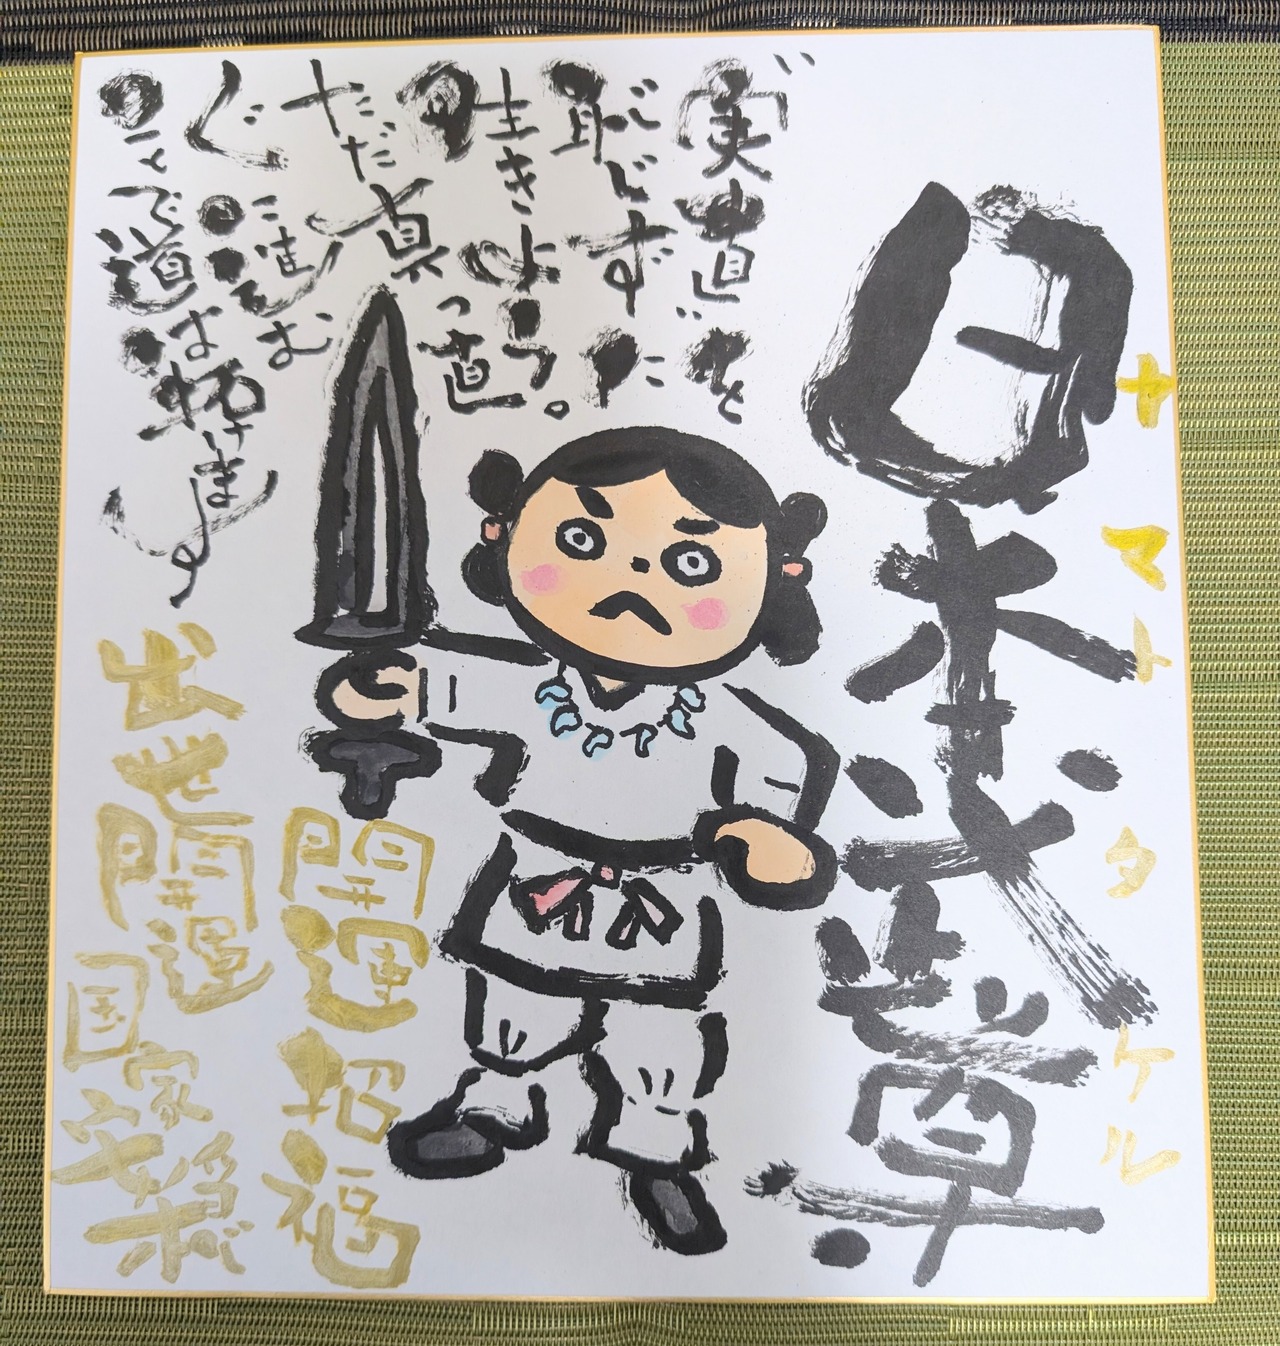 ヤマトタケル
日本武尊
"実直"を
恥じずに
生きよう。
ただ真っ直
ぐに進む
ことで道は拓けます
開運招福
出世開運
国家安